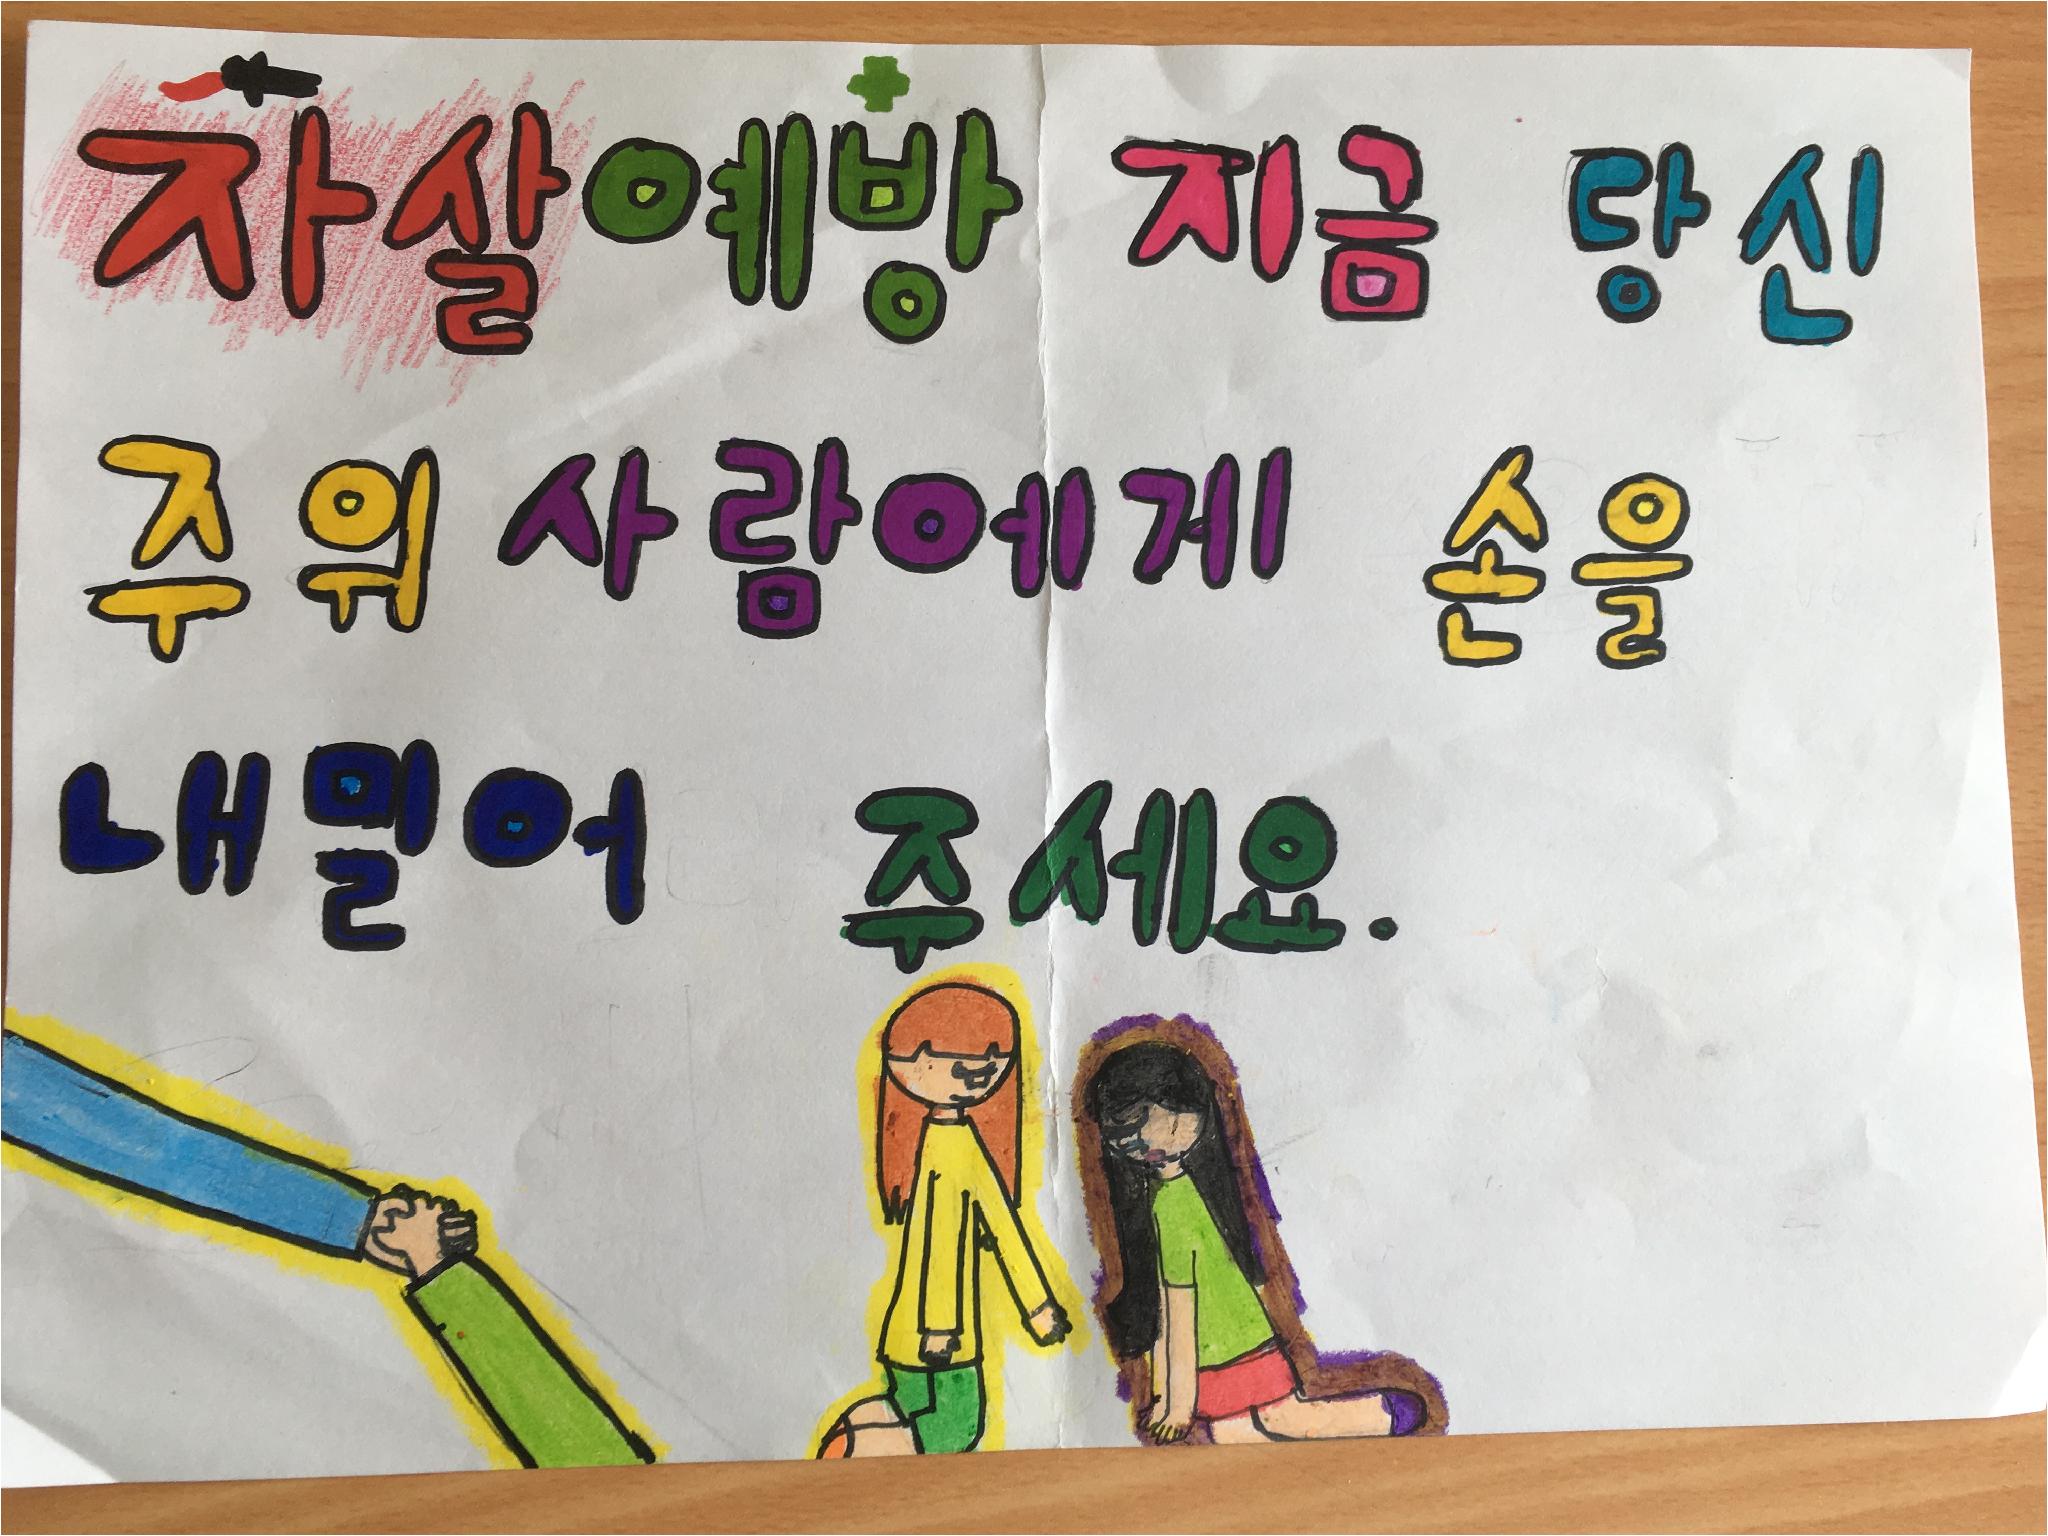 자살예방 지금 당신
주위 사람에게 손을
내밀어 주세요.